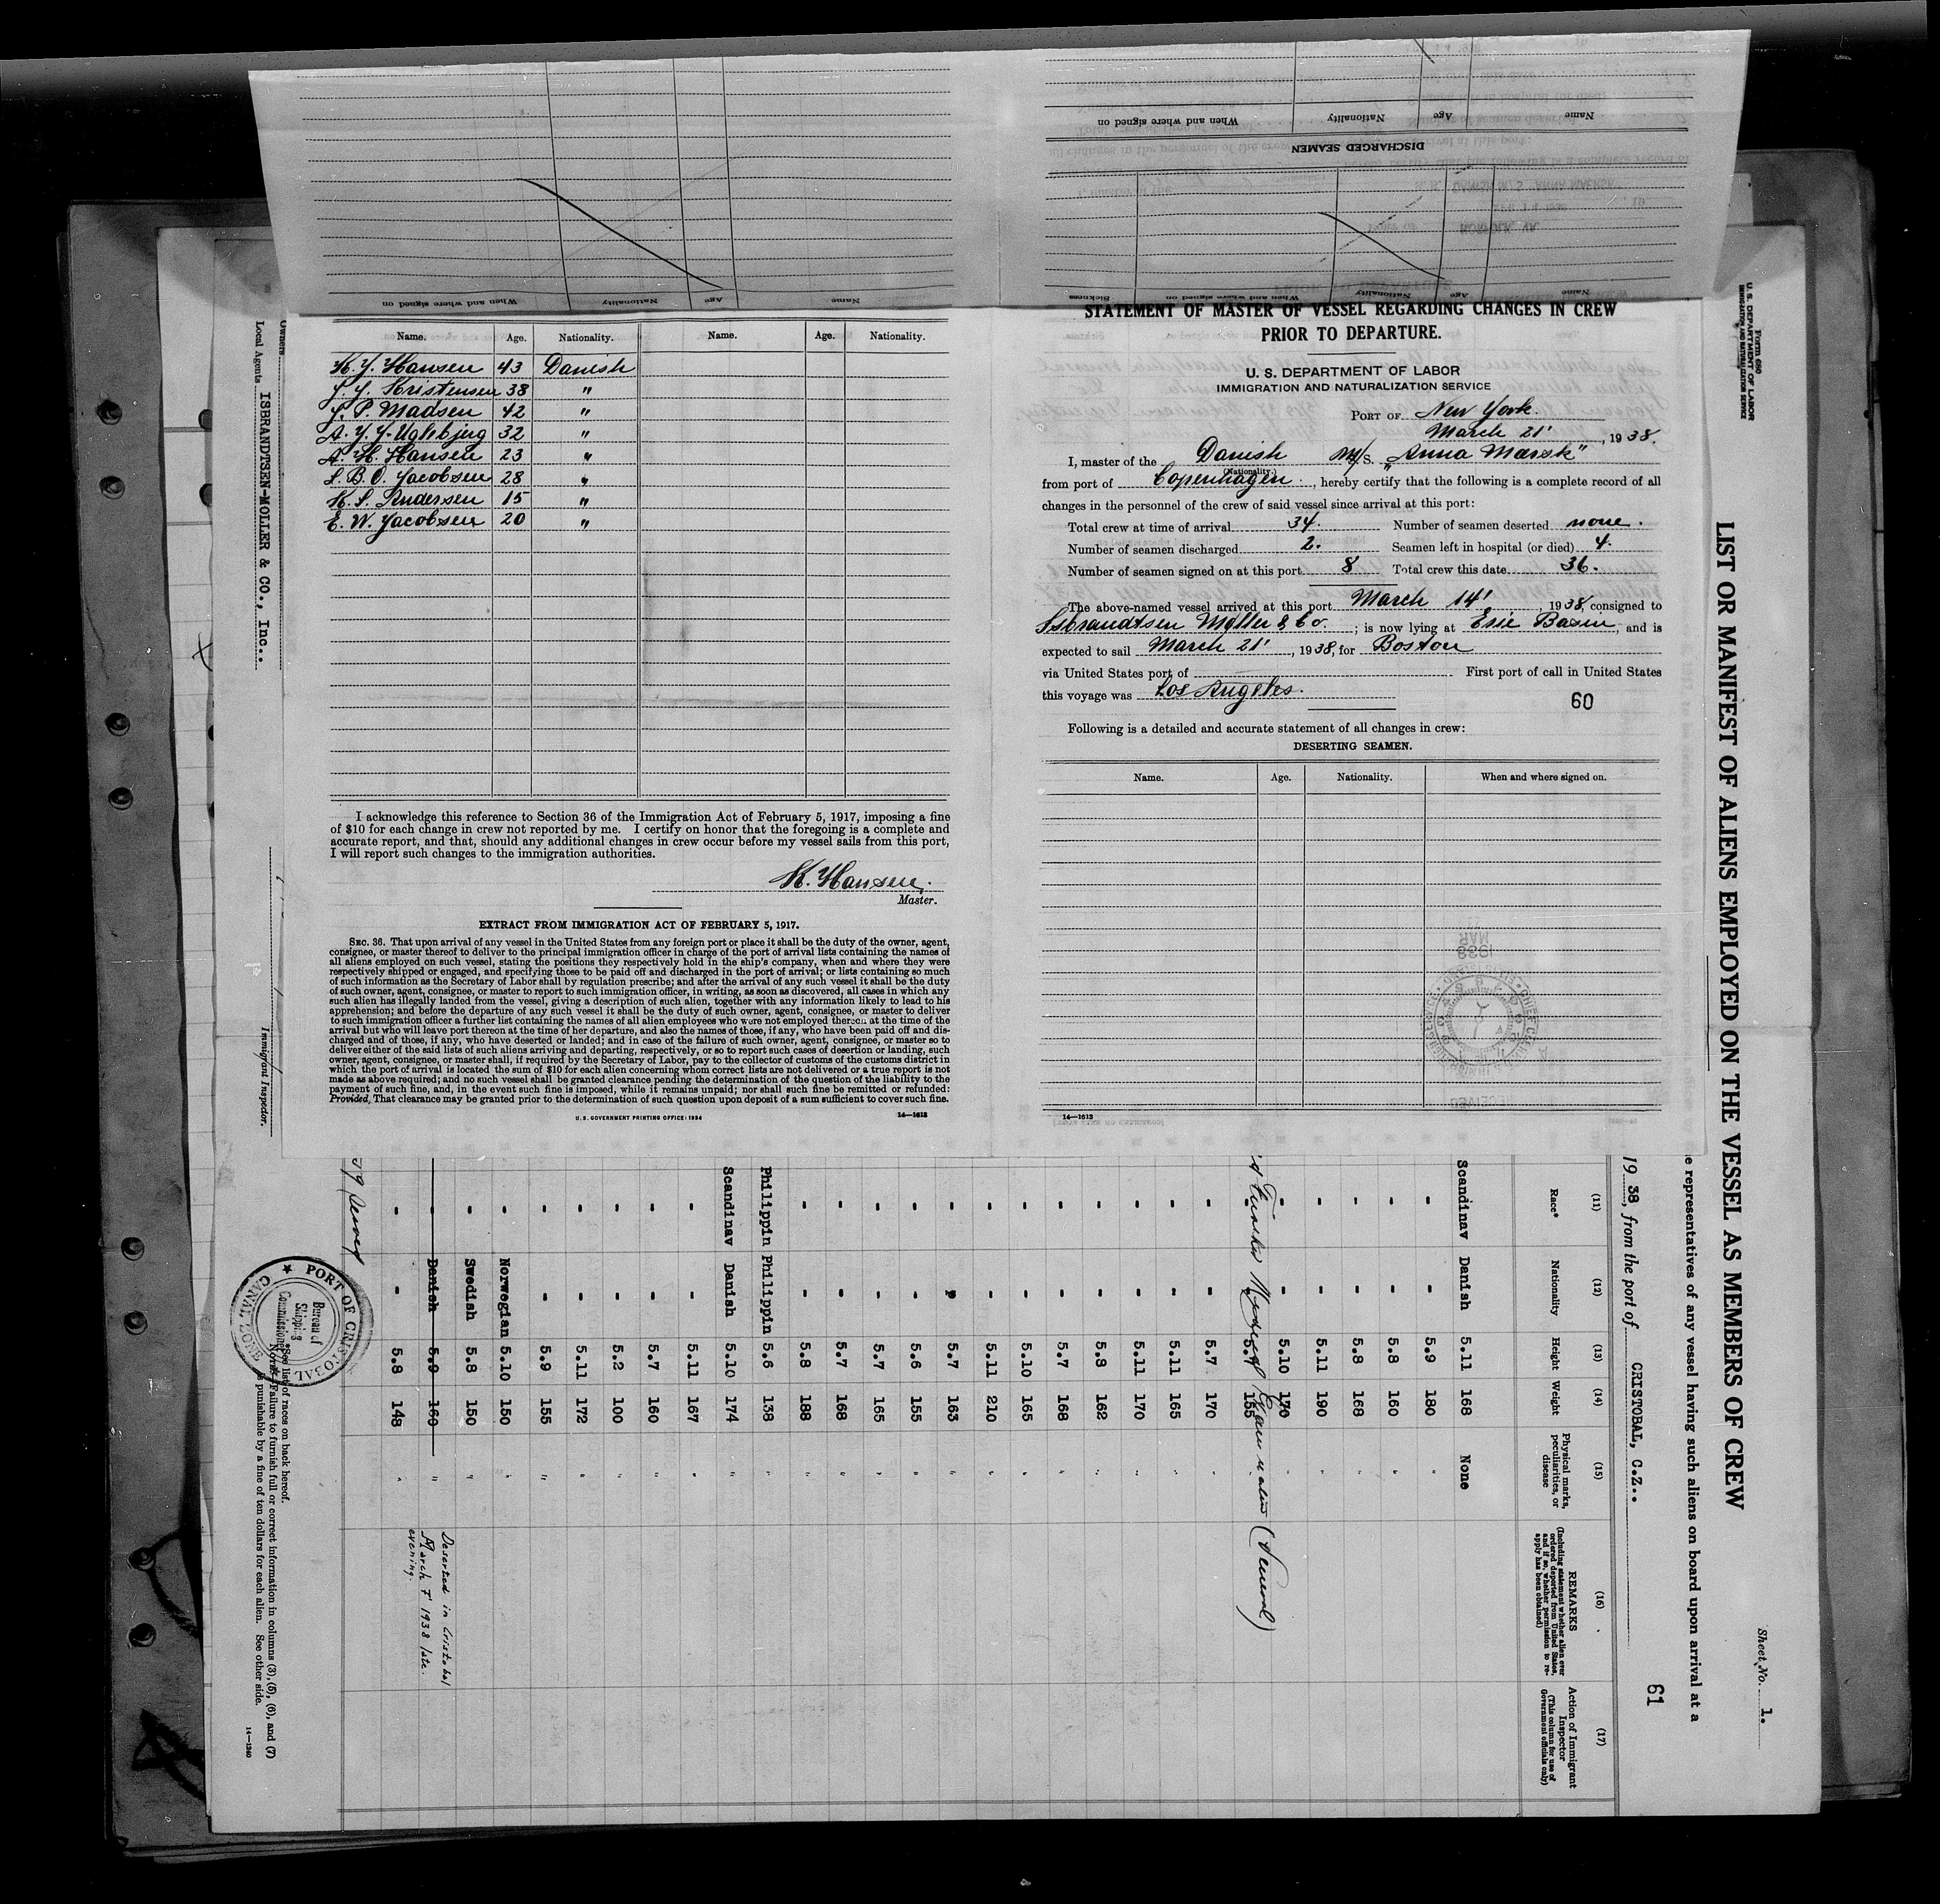 When and where signed on Nationality Age Name
When and where signed on Nationality Age Name
DISCHARGED SEAMEN
Sickness When and where signed on Nationality Age Name
Name. Age. Nationality. Name. Age. Nationality.
K. J. Hansen 43 Danish
J. J. Kristensen 38 "
J. P. Madsen 42 "
A. J. J. Uglebjerg 32 "
A. H. Hansen 23 "
L. B. O. Jacobsen 28 "
K. S. Andersen 15 "
E. W. Jacobsen 20 "
I acknowledge this reference to Section 36 of the Immigration Act of February 5, 1917, imposing a fine
of $10 for each change in crew not reported by me. I certify on honor that the foregoing is a complete and
accurate report, and that, should any additional changes in crew occur before my vessel sails from this port,
I will report such changes to the immigration authorities.
K. Hansen.
Master.
EXTRACT FROM IMMIGRATION ACT OF FEBRUARY 5, 1917.
SEC. 36. That upon arrival of any vessel in the United States from any foreign port or place it shall be the duty of the owner, agent,
consignee, or master thereof to deliver to the principal immigration officer in charge of the port of arrival lists containing the names of
all aliens employed on such vessel, stating the positions they respectively hold in the ship's company, when and where they were
respectively shipped or engaged, and specifying those to be paid off and discharged in the port of arrival; or lists containing so much
of such information as the Secretary of Labor shall by regulation prescribe; and after the arrival of any such vessel it shall be the duty
of such owner, agent, consignee, or master to report to such immigration officer, in writing, as soon as discovered, all cases in which any
such alien has illegally landed from the vessel, giving a description of such alien, together with any information likely to lead to his
apprehension; and before the departure of any such vessel it shall be the duty of such owner, agent, consignee, or master to deliver
to such immigration officer a further list containing the names of all alien employees who were not employed thereon at the time of the
arrival but who will leave port thereon at the time of her departure, and also the names of those, if any, who have been paid off and dis-
charged and of those, if any, who have deserted or landed; and in case of the failure of such owner, agent, consignee, or master so to
deliver either of the said lists of such aliens arriving and departing, respectively, or so to report such cases of desertion or landing, such
owner, agent, consignee, or master shall, if required by the Secretary of Labor, pay to the collector of customs of the customs district in
which the port of arrival is located the sum of $10 for each alien concerning whom correct lists are not delivered or a true report is not
made as above required; and no such vessel shall be granted clearance pending the determination of the question of the liability to the
payment of such fine, and, in the event such fine is imposed, while it remains unpaid; nor shall such fine be remitted or refunded:
Provided, That clearance may be granted prior to the determination of such question upon deposit of a sum sufficient to cover such fine.
U. S. GOVERNMENT PRINTING OFFICE: 1934 14—1613
STATEMENT OF MASTER OF VESSEL REGARDING CHANGES IN CREW
PRIOR TO DEPARTURE.
U. S. DEPARTMENT OF LABOR
IMMIGRATION AND NATURALIZATION SERVICE
PORT OF New York.
March 21', 1938.
I, master of the Danish M/S. "Anna Mærsk"
(Nationality.)
from port of Copenhagen., hereby certify that the following is a complete record of all
changes in the personnel of the crew of said vessel since arrival at this port:
Total crew at time of arrival 34. Number of seamen deserted none.
Number of seamen discharged 2. Seamen left in hospital (or died) 4.
Number of seamen signed on at this port 8 Total crew this date 36.
The above-named vessel arrived at this port March 14', 1938, consigned to
Isbrandtsen Møller & Co.; is now lying at Erie Basin, and is
expected to sail March 21', 1938, for Boston
via United States port of First port of call in United States
this voyage was Los Angeles.
60
Following is a detailed and accurate statement of all changes in crew:
DESERTING SEAMEN.
Name. Age. Nationality. When and where signed on.
14—1613
Form 680
U. S. DEPARTMENT OF LABOR
IMMIGRATION AND NATURALIZATION SERVICE
Sheet No. 1.
LIST OR MANIFEST OF ALIENS EMPLOYED ON THE VESSEL AS MEMBERS OF CREW
representatives of any vessel having such aliens on board upon arrival at a
61
19 38, from the port of CRISTOBAL, C.Z..
(11) (12) (13) (14) (15) (16) (17)
Race* Nationality Height Weight Physical marks, peculiarities, or disease REMARKS (Including statement whether alien ever ordered deported from United States, and if so, whether permission to reapply has been obtained) Action of Immigrant Inspector (This column for use of Government officials only)
Scandinav Danish 5.11 168 None
- - 5.9 180 "
- - 5.8 160 "
- - 5.8 168 "
- - 5.11 190 "
- - 5.10 170 "
- - 5.7 155
Medical Examination (General)
- - 5.7 170 "
- - 5.11 165 "
- - 5.11 170 "
- - 5.8 162 "
- - 5.7 168 "
- - 5.10 165 "
- - 5.11 210 "
- - 5.7 163 "
- - 5.6 155 "
- - 5.7 165 "
- - 5.7 168 "
- - 5.8 188 "
Philippin Philippin 5.6 138 "
Scandinav Danish 5.10 174 "
- - 5.11 167 "
- - 5.7 160 "
- - 5.2 100 "
- - 5.11 172 "
- - 5.9 155 "
- Norwegian 5.10 150 "
- Swedish 5.8 150 "
- Danish 5.9 160 " Deserted in Cristobal
March 7' 1938 late.
evening.
- - 5.8 148 "
PORT OF CRISTOBAL
CANAL ZONE
Bureau of
Shipping
Commissioner
*See list of races on back hereof.
NOTE.—Failure to furnish full or correct information in columns (3), (5), (6), and (7)
is punishable by a fine of ten dollars for each alien. See other side.
14—1240
Owners
Local Agents ISBRANDTSEN-MOLLER & CO., Inc..
Immigrant Inspector.